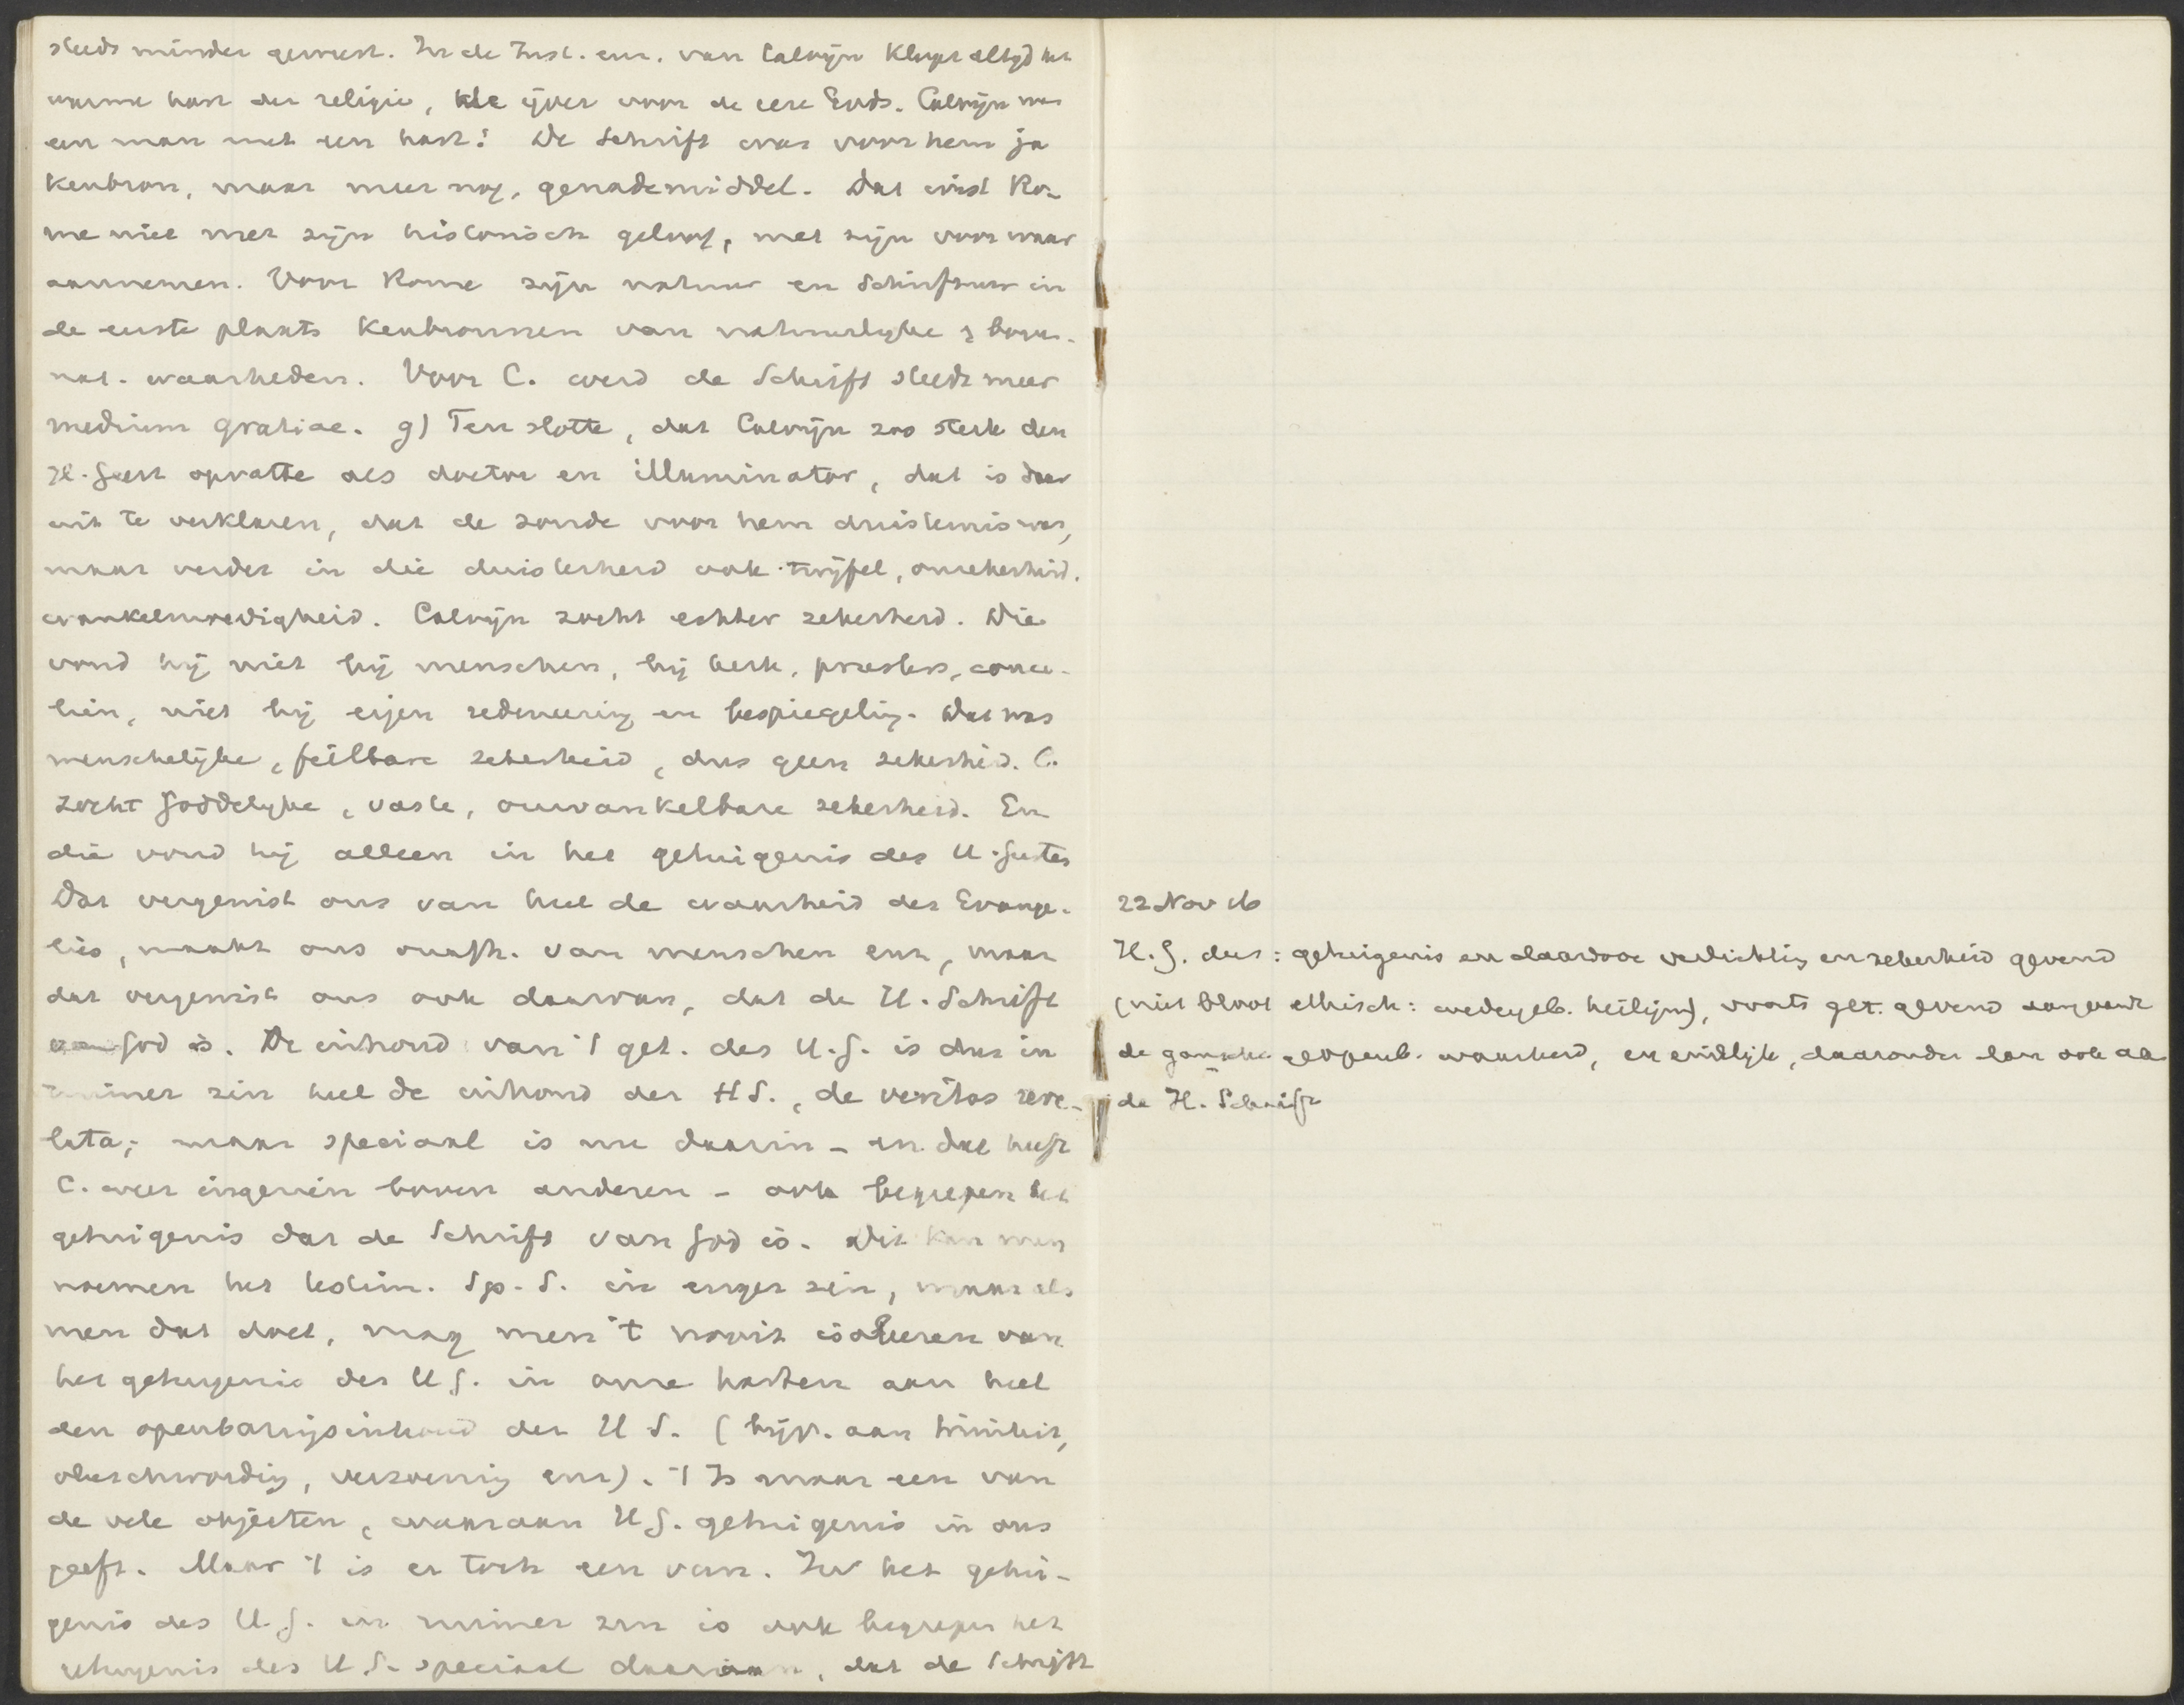 steeds minder geweest. In de Inst. enz. van Calvijn klopt altijd het
warme hart der religie, de ijver voor de eere Gods. Calvijn was
een man met een hart! De Schrift was voor hem ja
kenbron, maar meer nog, genademiddel. Dat wist Ro-
me niet met zijn historisch geloof, met zijn voor waar
aannemen. Voor Rome zijn natuur en Schriftuur in
de eerste plaats kenbronnen van natuurlijke & boven-
nat. waarheden. Voor C. werd de Schrift steeds meer
medium gratiae. g) Ten slotte, dat Calvijn zoo sterk den
H. Geest opvatte als doctor en illuminator, dat is daar
uit te verklaren, dat de zonde voor hem duisternis was,
maar verder in die duisterheid ook twijfel, onzekerheid,
wankelmoedigheid. Calvijn zocht echter zekerheid. Die
vond hij niet bij menschen, bij kerk, priesters, conci-
liën, niet bij eigen redeneering en bespiegeling. Dat was
menschelijke, feilbare zekerheid, dus geen zekerheid. C.
zocht Goddelijke, vaste, onwankelbare zekerheid. En
die vond hij alleen in het getuigenis des H. Geestes
Dat vergewist ons van heel de waarheid des Evange-
lies, maakt ons onafh. van menschen enz, maar
dat vergewist ons ook daarvan, dat de H. Schrift
van God is. De inhoud van 't get. des H.G. is dus in
ruimer zin heel de inhoud der HS., de veritas reve-
lata; maar speciaal is nu daarin - en dat heeft
C. weer ingezien boven anderen - ook begrepen het
getuigenis dat de Schrift van God is. Dit kan men
noemen het testim. Sp. S. in enger zin, maar als
men dat doet, mag men 't nooit isoleeren van
het getuigenis des H G. in onze harten aan heel
den openbaringsinhoud der H S. (bijv. aan triniteit,
vleeschwording, verzoening enz). 't Is maar een van
de vele objecten, waaraan H G. getuigenis in ons
geeft. Maar 't is er toch een van. In het getui-
genis des H. G. in ruimer zin is ook begrepen het
getuigenis des H. G. speciaal daaraan, dat de Schrift
22 Nov 16
H. G. dus: getuigenis en daardoor verlichting en zekerheid gevend
(niet bloot ethisch: wedergeb. heiligm), voorts get. gevend aangaande
de gansche geopenb. waarheid, en eindelijk, daaronder dan ook aan
de H. Schrift